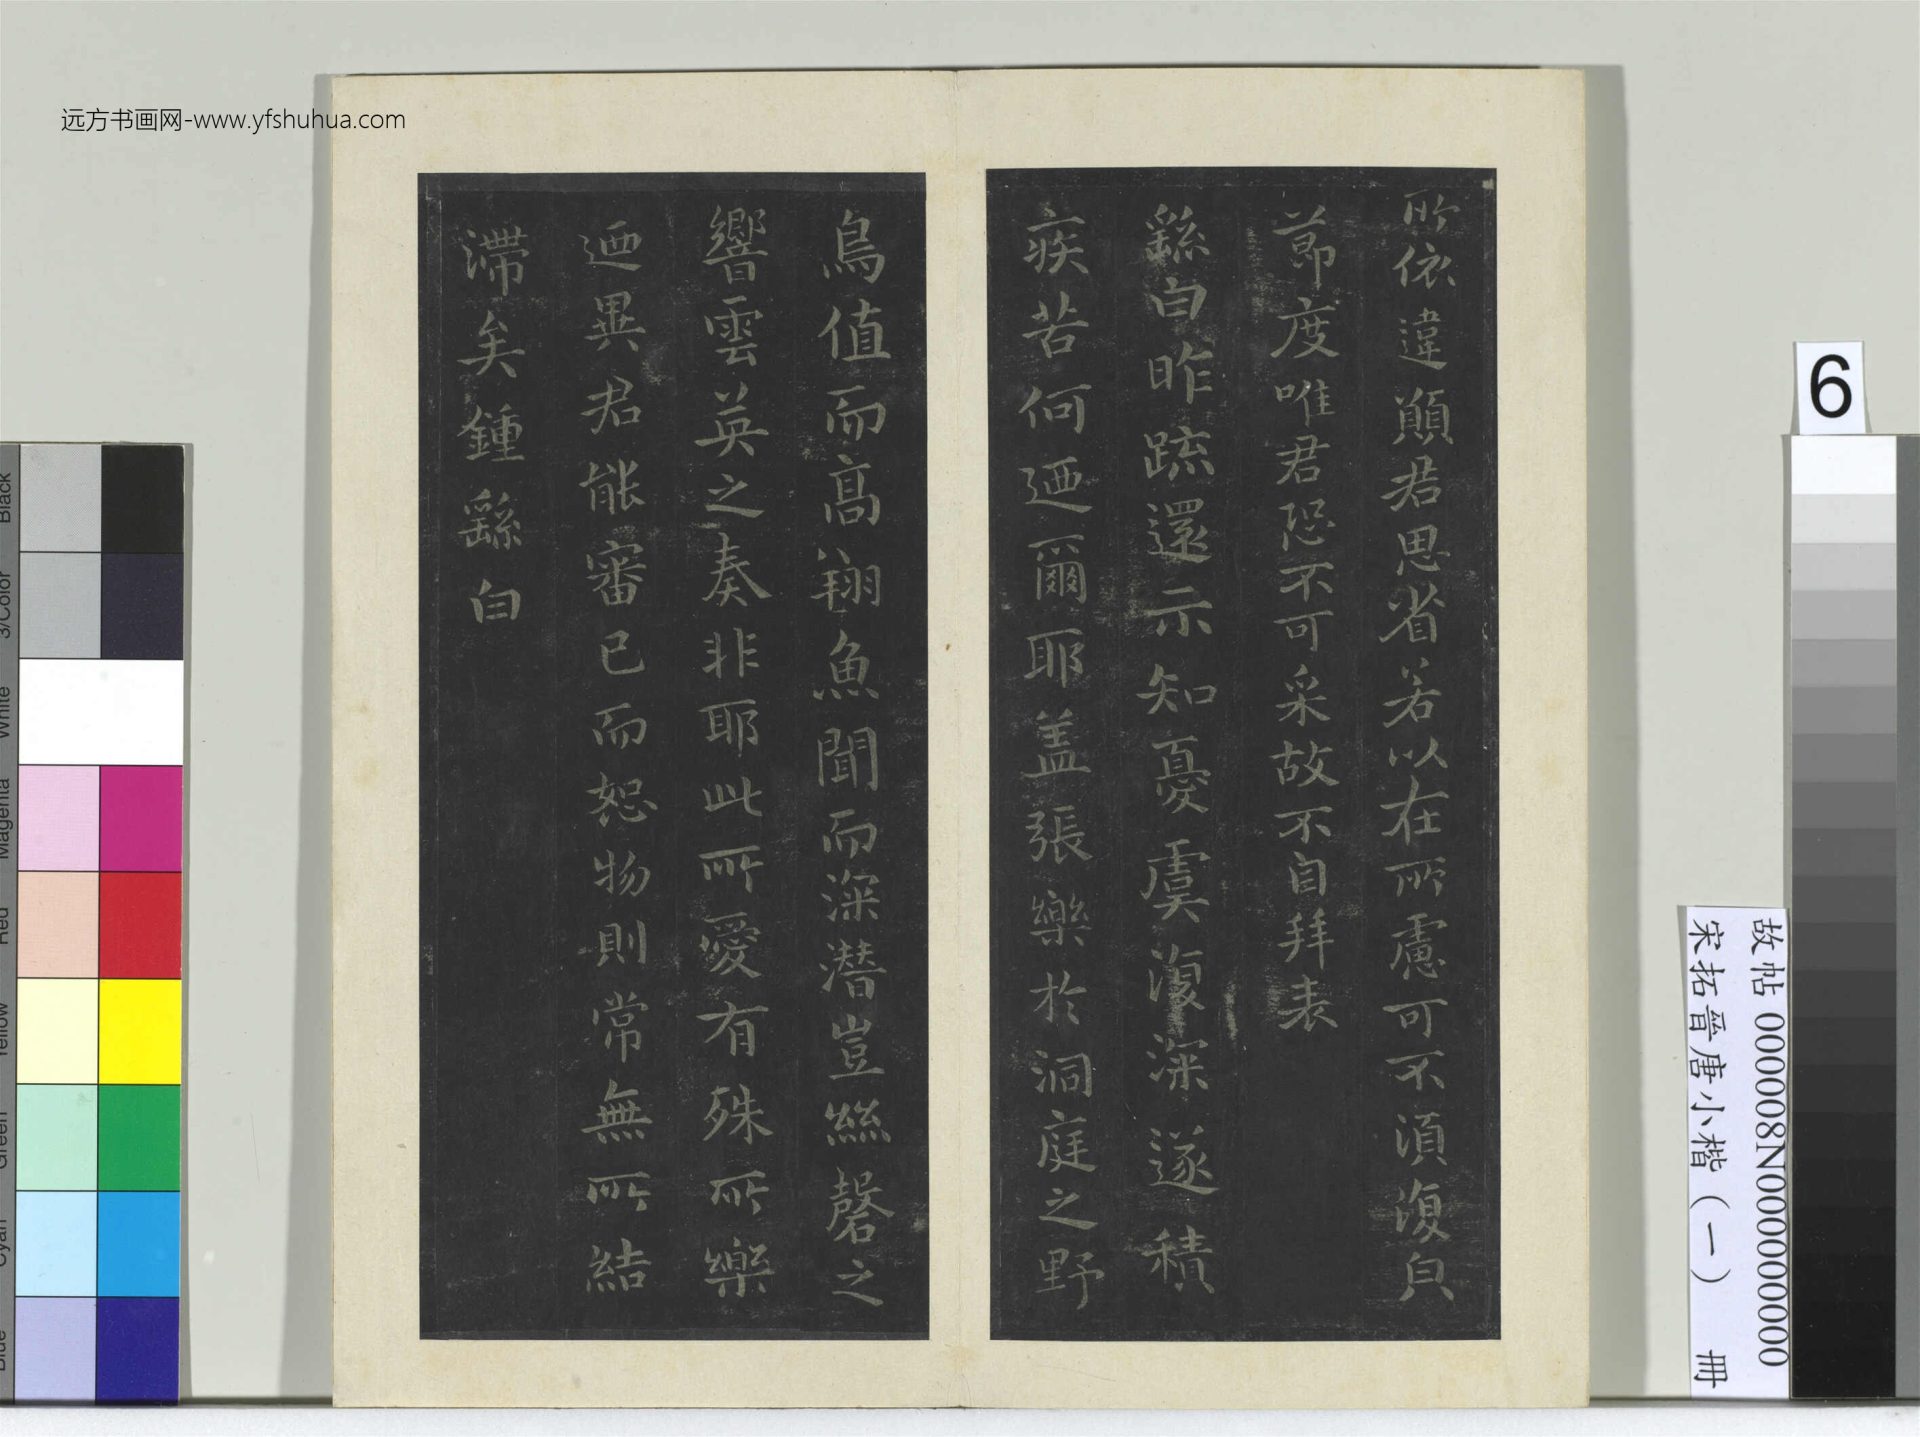 远方书画网-www.yfshuhua.com
所依違願君思省若以在所慮可不須復皃
節度唯君恐不可采故不自拜表
繇白昨疏還示知憂虞復深遂積
疾苦何迺爾耶盖張樂於洞庭之野
鳥值而高翔魚聞而深潛豈絲磬之
響雲英之奏非耶此所愛有殊所樂
迺異君能審己而恕物則常無所結
滯矣鍾繇白
6
故帖 000008N000000000
宋拓晋唐小楷(一) 册
Black
3/Color
White
Magenta
Red
Yellow
Green
Cyan
Blue